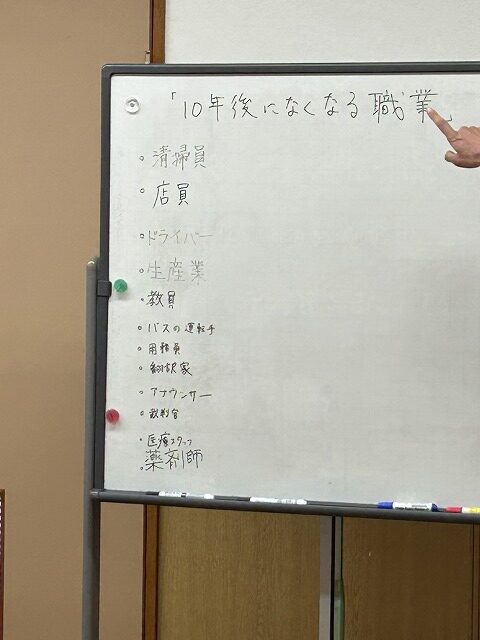 「10年後になくなる職業」
。清掃員
。店員
。ドライバー
。生産業
。教員
。バスの運転手
。用務員
。翻訳家
。アナウンサー
。裁判官
。医療スタッフ
。薬剤師